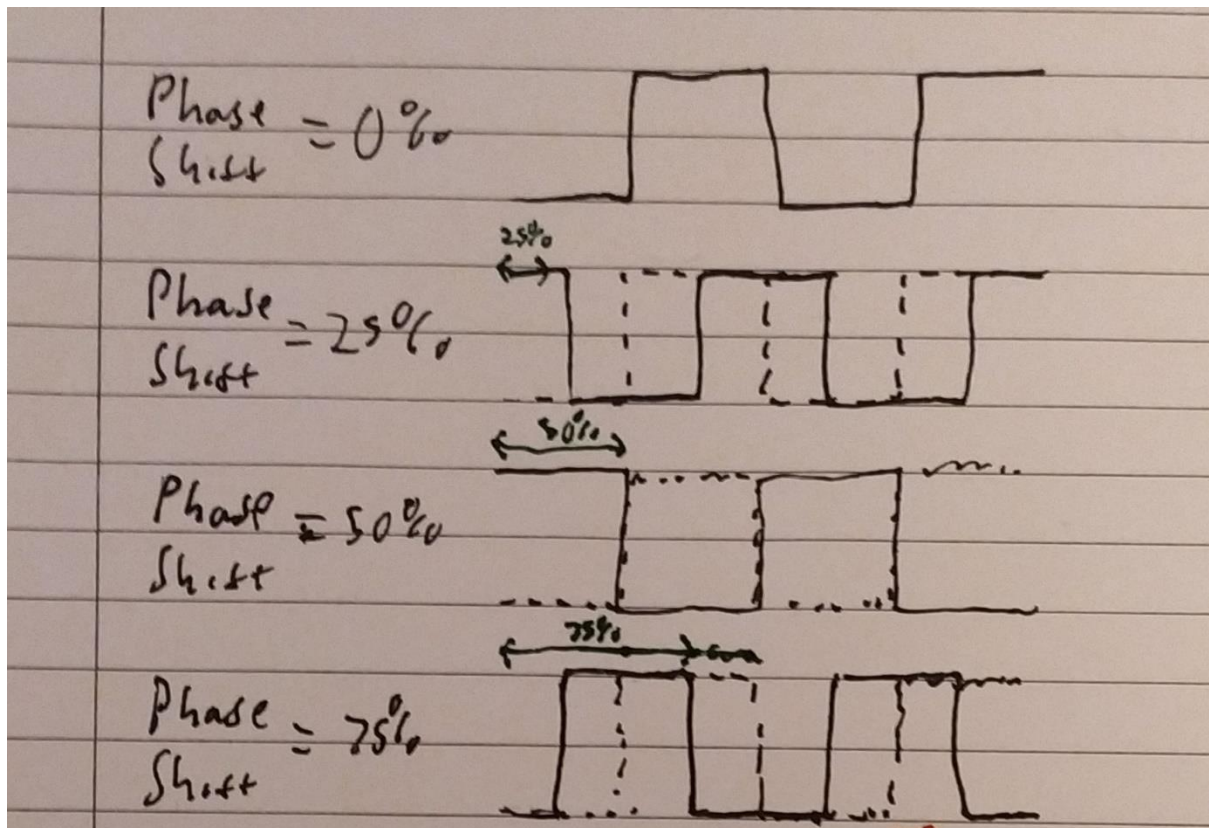 Phase
Shift = 0%
25%
Phase
Shift = 25%
50%
Phase
Shift = 50%
75%
Phase
Shift = 75%